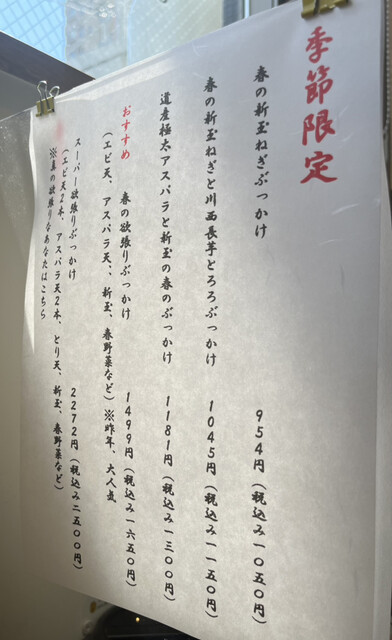 季節限定
春の新玉ねぎぶっかけ 954円(税込み一〇五〇円)
春の新玉ねぎと川西長芋とろろぶっかけ 1045円(税込み一一五〇円)
道産極太アスパラと新玉の春のぶっかけ 1181円(税込み一三〇〇円)
おすすめ 春の欲張りぶっかけ 1499円(税込み一六五〇円)
(エビ天、アスパラ天、、新玉、春野菜など)※昨年、大人気
スーパー欲張りぶっかけ 2272円(税込み二五〇〇円)
(エビ天2本、アスパラ天2本、とり天、新玉、春野菜など)
※真の欲張りなあなたはこちら